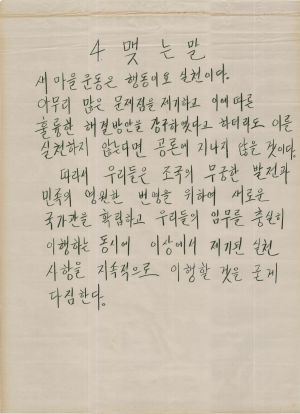 4. 맺는말
새마을운동은 행동이요 실천이다.
아무리 많은 문제점을 제기하고 이에 따른
훌륭한 해결방안을 강구하였다고 하더라도 이를
실천하지 않는다면 공론에 지나지 않을 것이다.
따라서 우리들은 조국의 무궁한 발전과
민족의 영원한 번영을 위하여 새로운
국가관을 확립하고 우리들의 임무를 충실히
이행하는 동시에 이상에서 제기된 실천
사항을 지속적으로 이행할 것을 굳게
다짐한다.